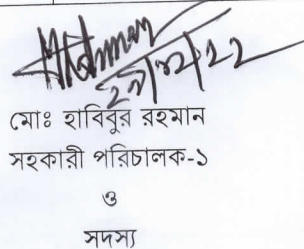 মোঃ হাবিবুর রহমান
সহকারী পরিচালক-১
ও
সদস্য